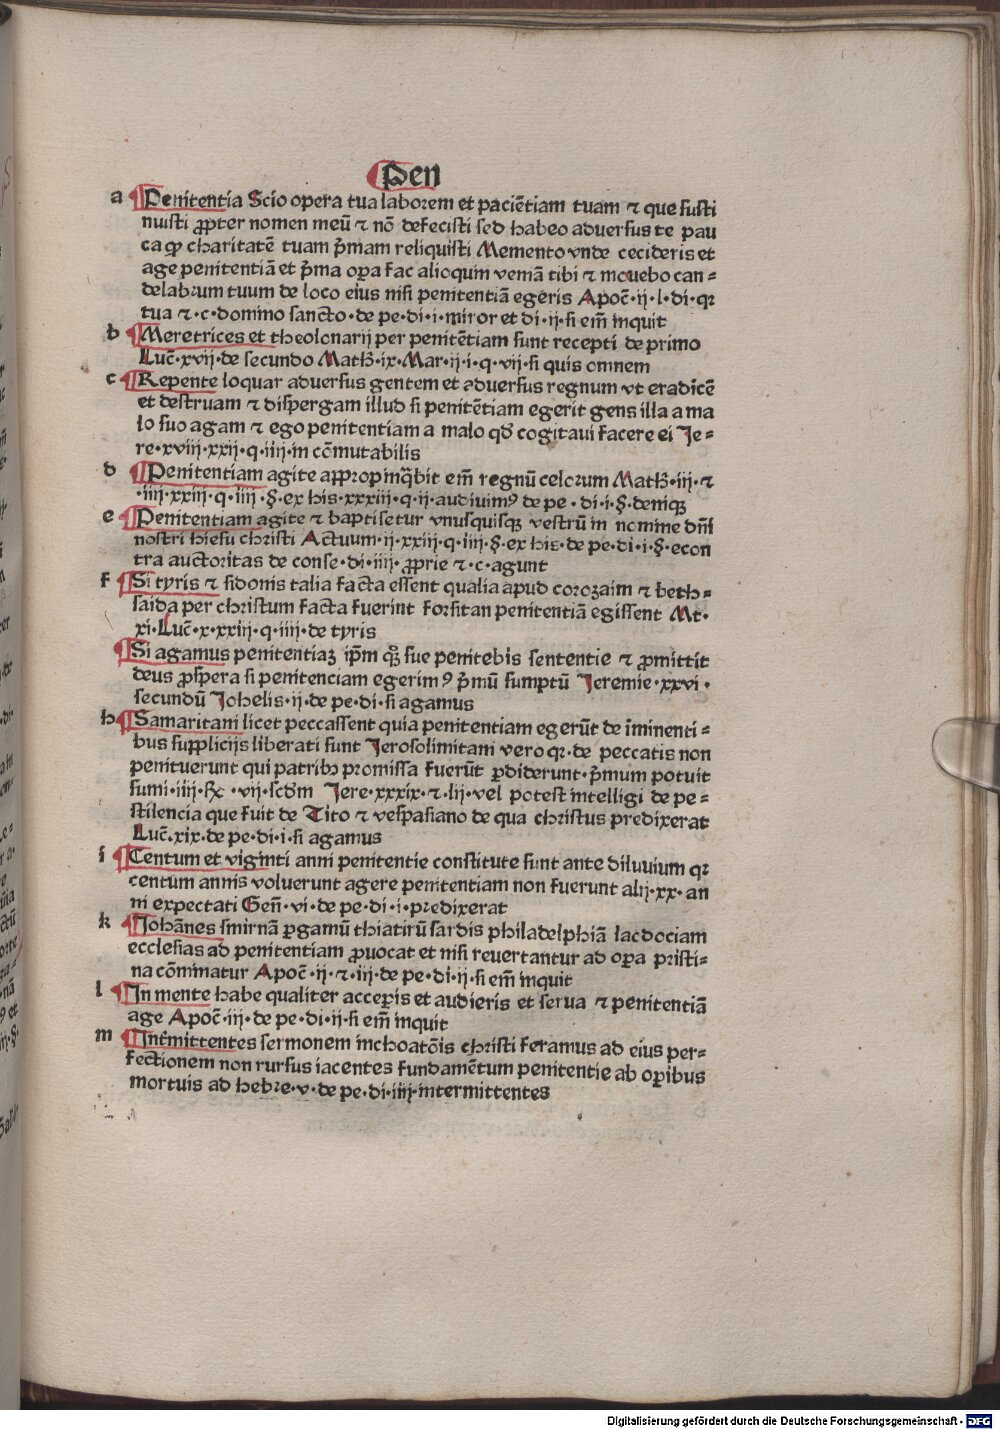 Pen
a Penitentia Scio opera tua laborem et paciētiam tuam ⁊ que susti
nuisti ꝓpter nomen meū ⁊ nō defecisti sed habeo adversus te pau
ca ꝙ charitatē tuam p̄mam reliquisti Memento vnde cecideris et
age penitentiā et p̄ma oꝑa fac alioquin veniā tibi ⁊ movebo can⸗
delabrum tuum de loco eius nisi penitentiā egeris Apoc̄·ij·l·di·qꝛ
tua ⁊·c·domino sancto·de pe·di·i·miror et di·ij·si em̄ inquit
b Meretrices et theolonarij per penitētiam sunt recepti de primo
Luc̄·xvij·de secundo Math̄·ix·Mar·ij·i·q·vij·si quis omnem
c Repente loquar adversus gentem et adversus regnum vt eradicē
et destruam ⁊ dispergam illud si penitētiam egerit gens illa a ma
lo suo agam ⁊ ego penitentiam a malo qd̄ cogitaui facere ei Je⸗
re·xviij·xxij·q·iiij·in cōmutabilis
d Penitentiam agite appropinq̄bit em̄ regnū celorum Math̄·iij·⁊
·iiij·xxiij·q·iiij·§·ex his·xxxiij·q·ij·audiuimꝰ de pe·di·i·§·deniqꝫ
e Penitentiam agite ⁊ baptisetur vnusquisqꝫ vestrū in nomine dn̄i
nostri hiesu christi Actuum·ij·xxiij·q·iiij·§·ex his·de pe·di·i·§·econ
tra auctoritas de conse·di·iiij·ꝓprie ⁊·c·agunt
f Si tyris ⁊ sidonis talia facta essent qualia apud corozaim ⁊ beth⸗
saida per christum facta fuerint forsitan penitentiā egissent Mt·
xi·Luc̄·x·xxiij·q·iiij·de tyris
Si agamus penitentiaꝫ ip̄m qꝫ sue penitebis sententie ⁊ ꝓmittit
deus ꝓspera si penitenciam egerimꝰ p̄mū sumptū Jeremie·xxvi·
secundū Johelis·ij·de pe·di·si agamus
h Samaritani licet peccassent quia penitentiam egerūt de īminenti⸗
bus supplicijs liberati sunt Jerosolimitani vero qꝛ·de peccatis non
penituerunt qui patribꝫ promissa fuerūt ꝑdiderunt·p̄mum potuit
sumi·iiij·Rc̄·vij·scd̄m Jere·xxxix·⁊·lij·vel potest intelligi de pe⸗
stilencia que fuit de Tito ⁊ vespasiano de qua christus predixerat
Luc̄·xix·de pe·di·i·si agamus
i Centum et viginti anni penitentie constitute sunt ante diluvium qꝛ
centum annis voluerunt agere penitentiam non fuerunt alij·xx·an
ni expectati Gen̄·vi·de pe·di·i·predixerat
k Johānes smirnā ꝑgamū thiatirū sardis philadelphiā lacdociam
ecclesias ad penitentiam ꝓuocat et nisi revertantur ad oꝑa pristi⸗
na cōminatur Apoc̄·ij·⁊·iij·de pe·di·ij·si em̄ inquit
l In mente habe qualiter acceꝑis et audieris et serua ⁊ penitentiā
age Apoc̄·iij·de pe·di·ij·si em̄ inquit
m Int̄mittentes sermonem inchoatōis christi feramus ad eius per⸗
fectionem non rursus iacentes fundamētum penitentie ab oꝑibus
mortuis ad hebre·v·de pe·di·iiij·intermittentes
Digitalisierung gefördert durch die Deutsche Forschungsgemeinschaft - DFG